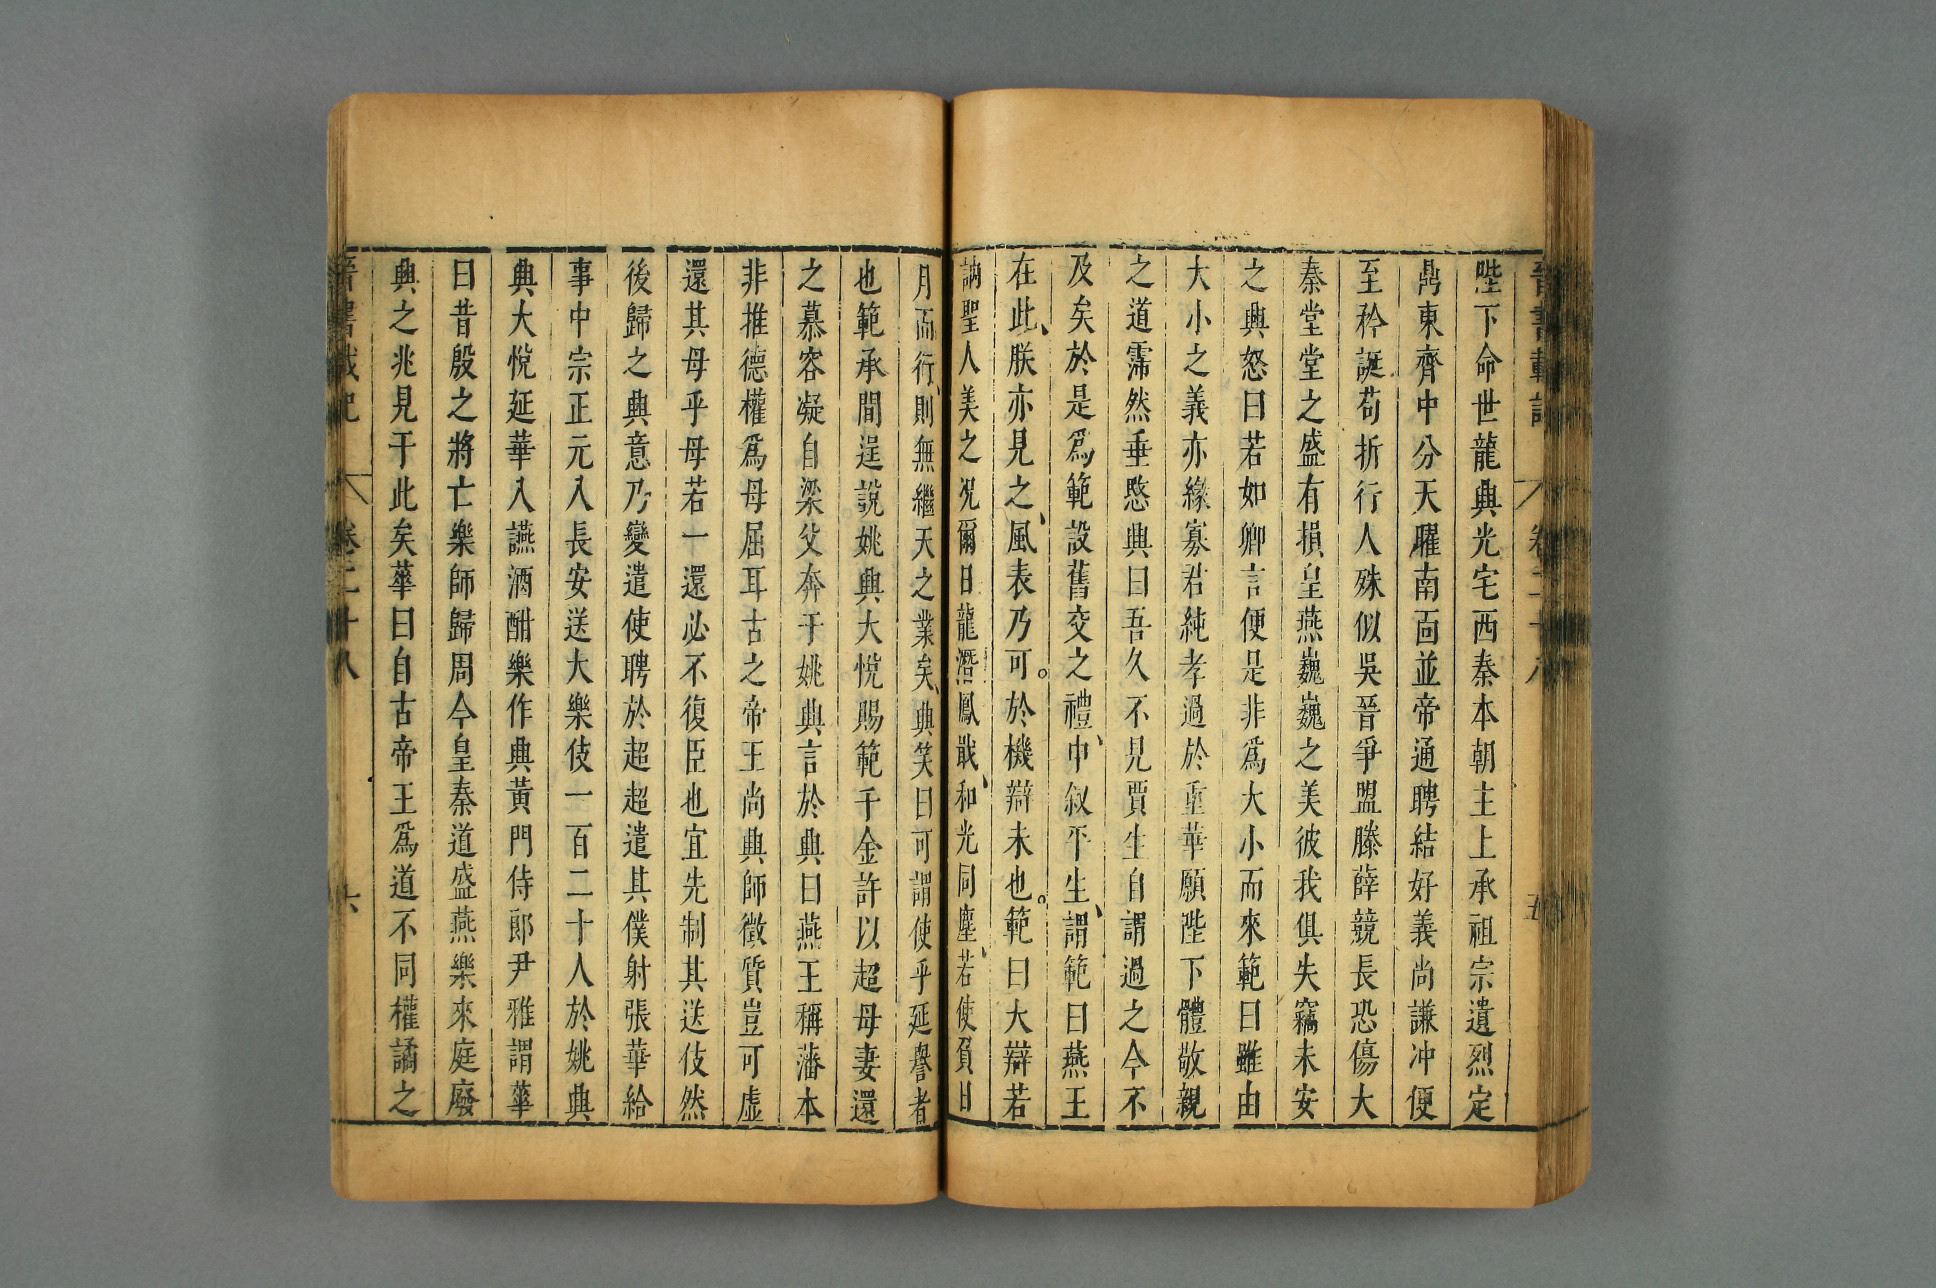 晉書載記 卷二十八 五
陛下命世龍興光宅西秦本朝主上承祖宗遺烈定
鼎東齊中分天曜南面並帝通聘結好義尚謙冲便
至矜誕苟折行人殊似吳晉爭盟滕薛競長恐傷大
秦堂堂之盛有損皇燕巍巍之美彼我俱失竊未安
之興怒曰若如卿言便是非為大小而來範曰雖由
大小之義亦緣寡君純孝過於重華願陛下體敬親
之道霈然垂愍興曰吾久不見賈生自謂過之今不
及矣於是爲範設舊交之禮、中叙平生、謂範曰燕王
在此、朕亦見之、風表乃可。於機辯未也。範曰大辯若
訥聖人美之况爾日龍潛鳳戢、和光同塵、若使負日
月而行、則無繼天之業矣、興笑曰可謂使乎延譽者
也範承間逞說姚興大悅賜範千金許以超母妻還
之慕容凝自梁父奔于姚興言於興曰燕王稱藩本
非推德權爲母屈耳古之帝王尚興師徵質豈可虛
還其母乎母若一還必不復臣也宜先制其送伎然
後歸之興意乃變遣使聘於超超遣其僕射張華給
事中宗正元入長安送大樂伎一百二十人於姚興
興大悅延華入讌酒酣樂作興黃門侍郎尹雅謂華
曰昔殷之將亡樂師歸周今皇秦道盛燕樂來庭廢
興之兆見于此矣華曰自古帝王爲道不同權譎之
晉書載記 卷二十八 六